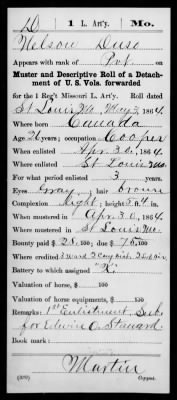 D | 1 | L. Art'y. | Mo.
Nelson Duso
Appears with rank of Pvt. on
Muster and Descriptive Roll of a Detachment
of U. S. Vols. forwarded
for the 1 Reg't Missouri L. Art'y. Roll dated
St Louis Mo. May 3, 1864.
Where born Canada
Age 21 years; occupation Cooper
When enlisted Apr. 30, 1864.
Where enlisted St Louis Mo.
For what period enlisted 3 years.
Eyes Gray; hair brown
Complexion light; height 5 ft. 4 in.
When mustered in Apr. 30, 1864.
Where mustered in St Louis Mo.
Bounty paid $ 25 100; due $ 75 100
Where credited 3 ward
Battery to which assigned "K"
Valuation of horse, $ 100
Valuation of horse equipments, $ 100
Remarks: 1st Enlistment Sub.
for Edwin O. Stanard.
Book mark:
Martin
Copyist.